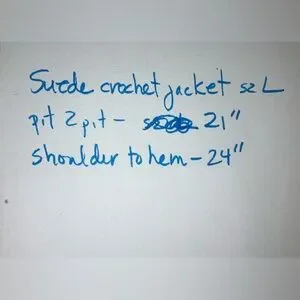 Suede crochet jacket sz L
pit 2 pit - 21"
shoulder to hem - 24"